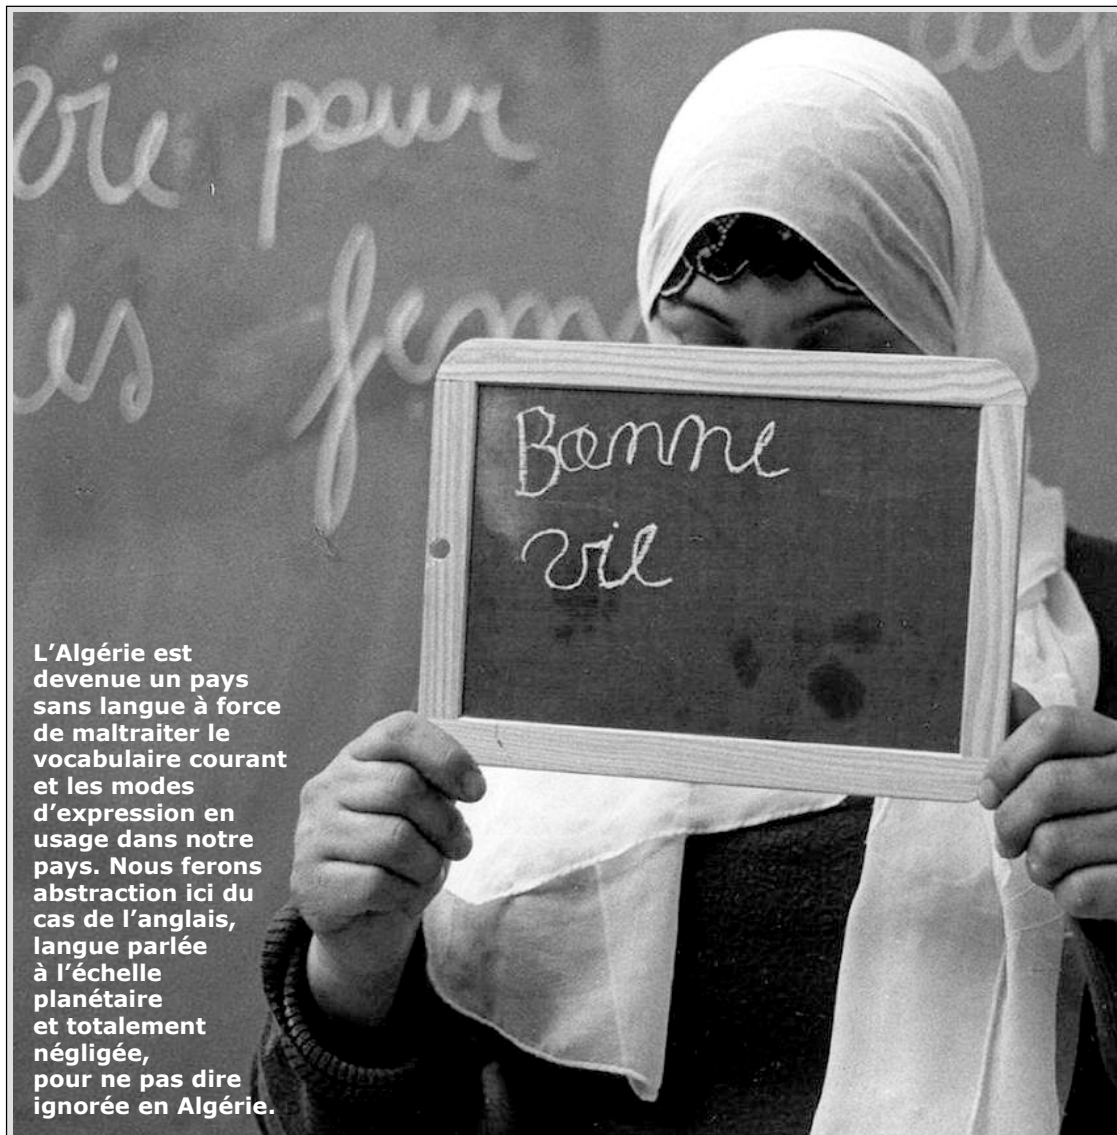 vie pour
es fem
Bonne
vie
L’Algérie est
devenue un pays
sans langue à force
de maltraiter le
vocabulaire courant
et les modes
d’expression en
usage dans notre
pays. Nous ferons
abstraction ici du
cas de l’anglais,
langue parlée
à l’échelle
planétaire
et totalement
négligée,
pour ne pas dire
ignorée en Algérie.